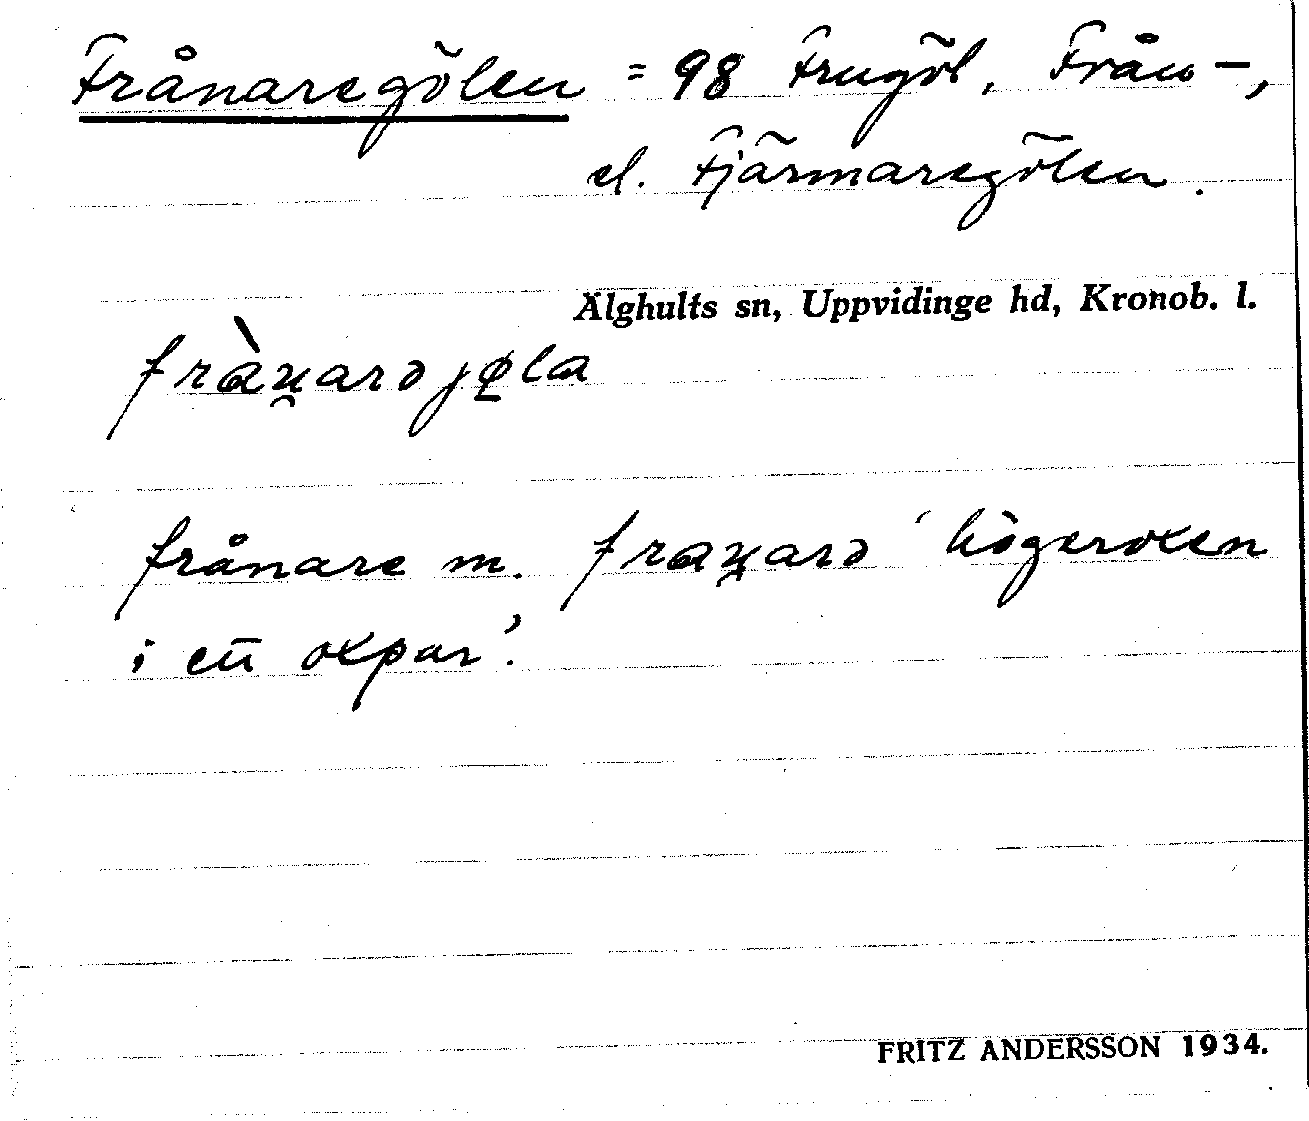 Frånaregölen = 98 Frugöl, Från-,
el. Fjärmaregölen.
Älghults sn, Uppvidinge hd, Kronob. l.
frånare m. 'högeroxen
i ett oxpar'.
FRITZ ANDERSSON 1934.